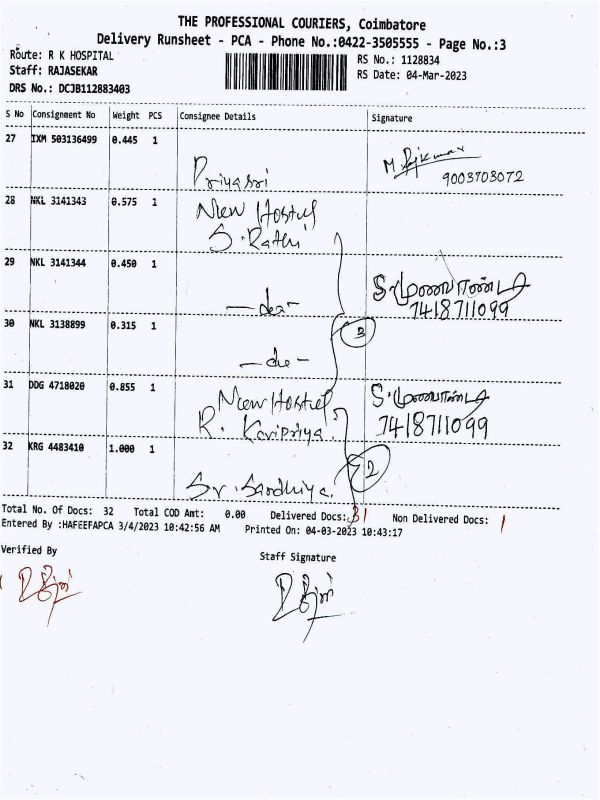 THE PROFESSIONAL COURIERS, Coimbatore
Delivery Runsheet - PCA - Phone No.:0422-3505555 - Page No.:3
Route: R K HOSPITAL
RS No.: 1128834
Staff: RAJASEKAR
RS Date: 04-Mar-2023
DRS No.: DCJB112883403
S No Consignment No Weight PCS Consignee Details Signature
27 IXM 503136499 0.445 1
Priyasri
M. Rajkumar
9003703072
28 NKL 3141343 0.575 1 New Hostel
S. Rathi
29 NKL 3141344 0.450 1
S. முணியாண்டி
7418711099
30 NKL 3138899 0.315 1
3
— do —
31 DDG 4718020 0.855 1 New Hostel
R. Karipriya.
S. முணியாண்டி
7418711099
32 KRG 4483410 1.000 1
2
Sr. Sandhiya.
Total No. Of Docs: 32 Total COD Amt: 0.00 Delivered Docs: 31 Non Delivered Docs: 1
Entered By :HAFEEFAPCA 3/4/2023 10:42:56 AM Printed On: 04-03-2023 10:43:17
Verified By
Staff Signature